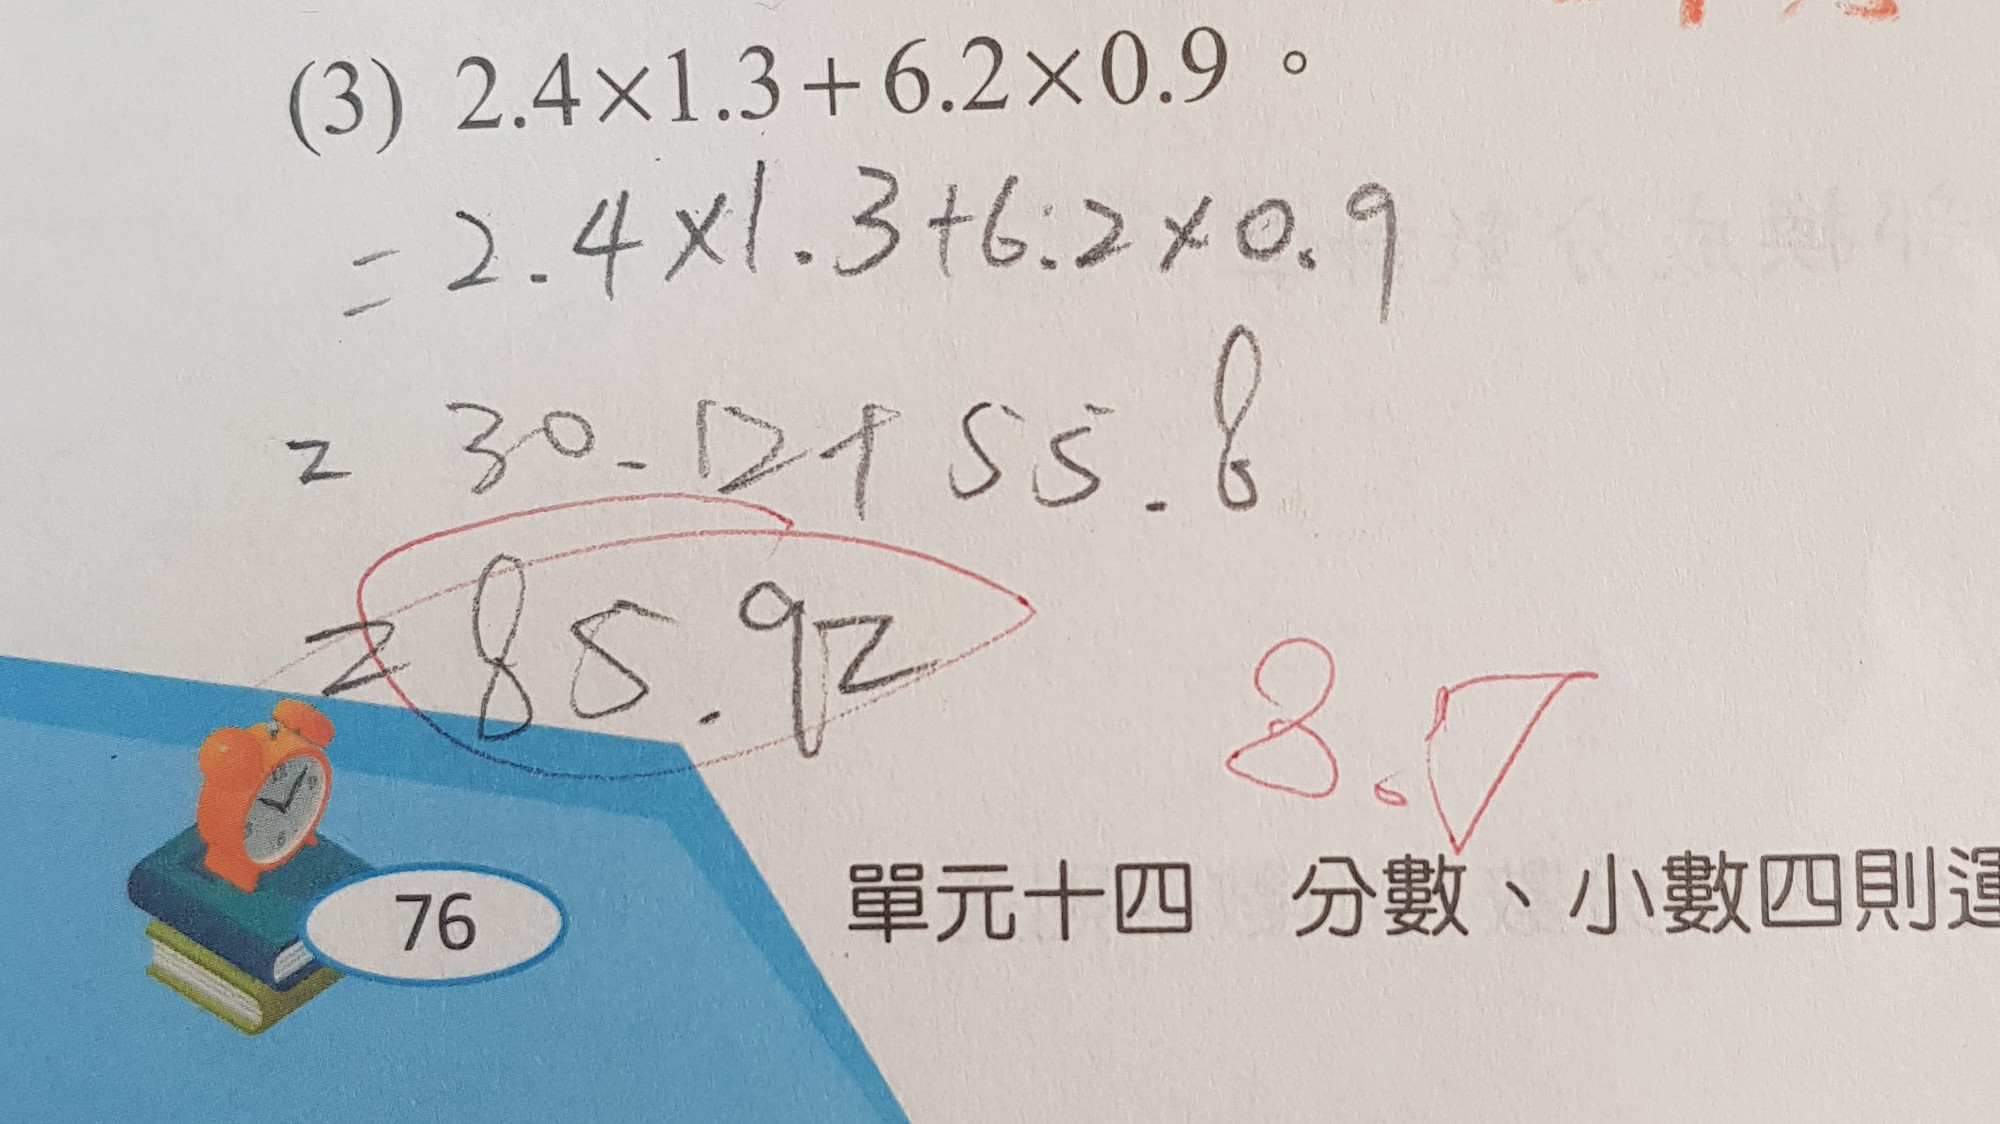 (3) 2.4×1.3+6.2×0.9。
=2.4×1.3+6.2×0.9
= 30.12+55.8
=85.92
8.7
76
單元十四 分數、小數四則運